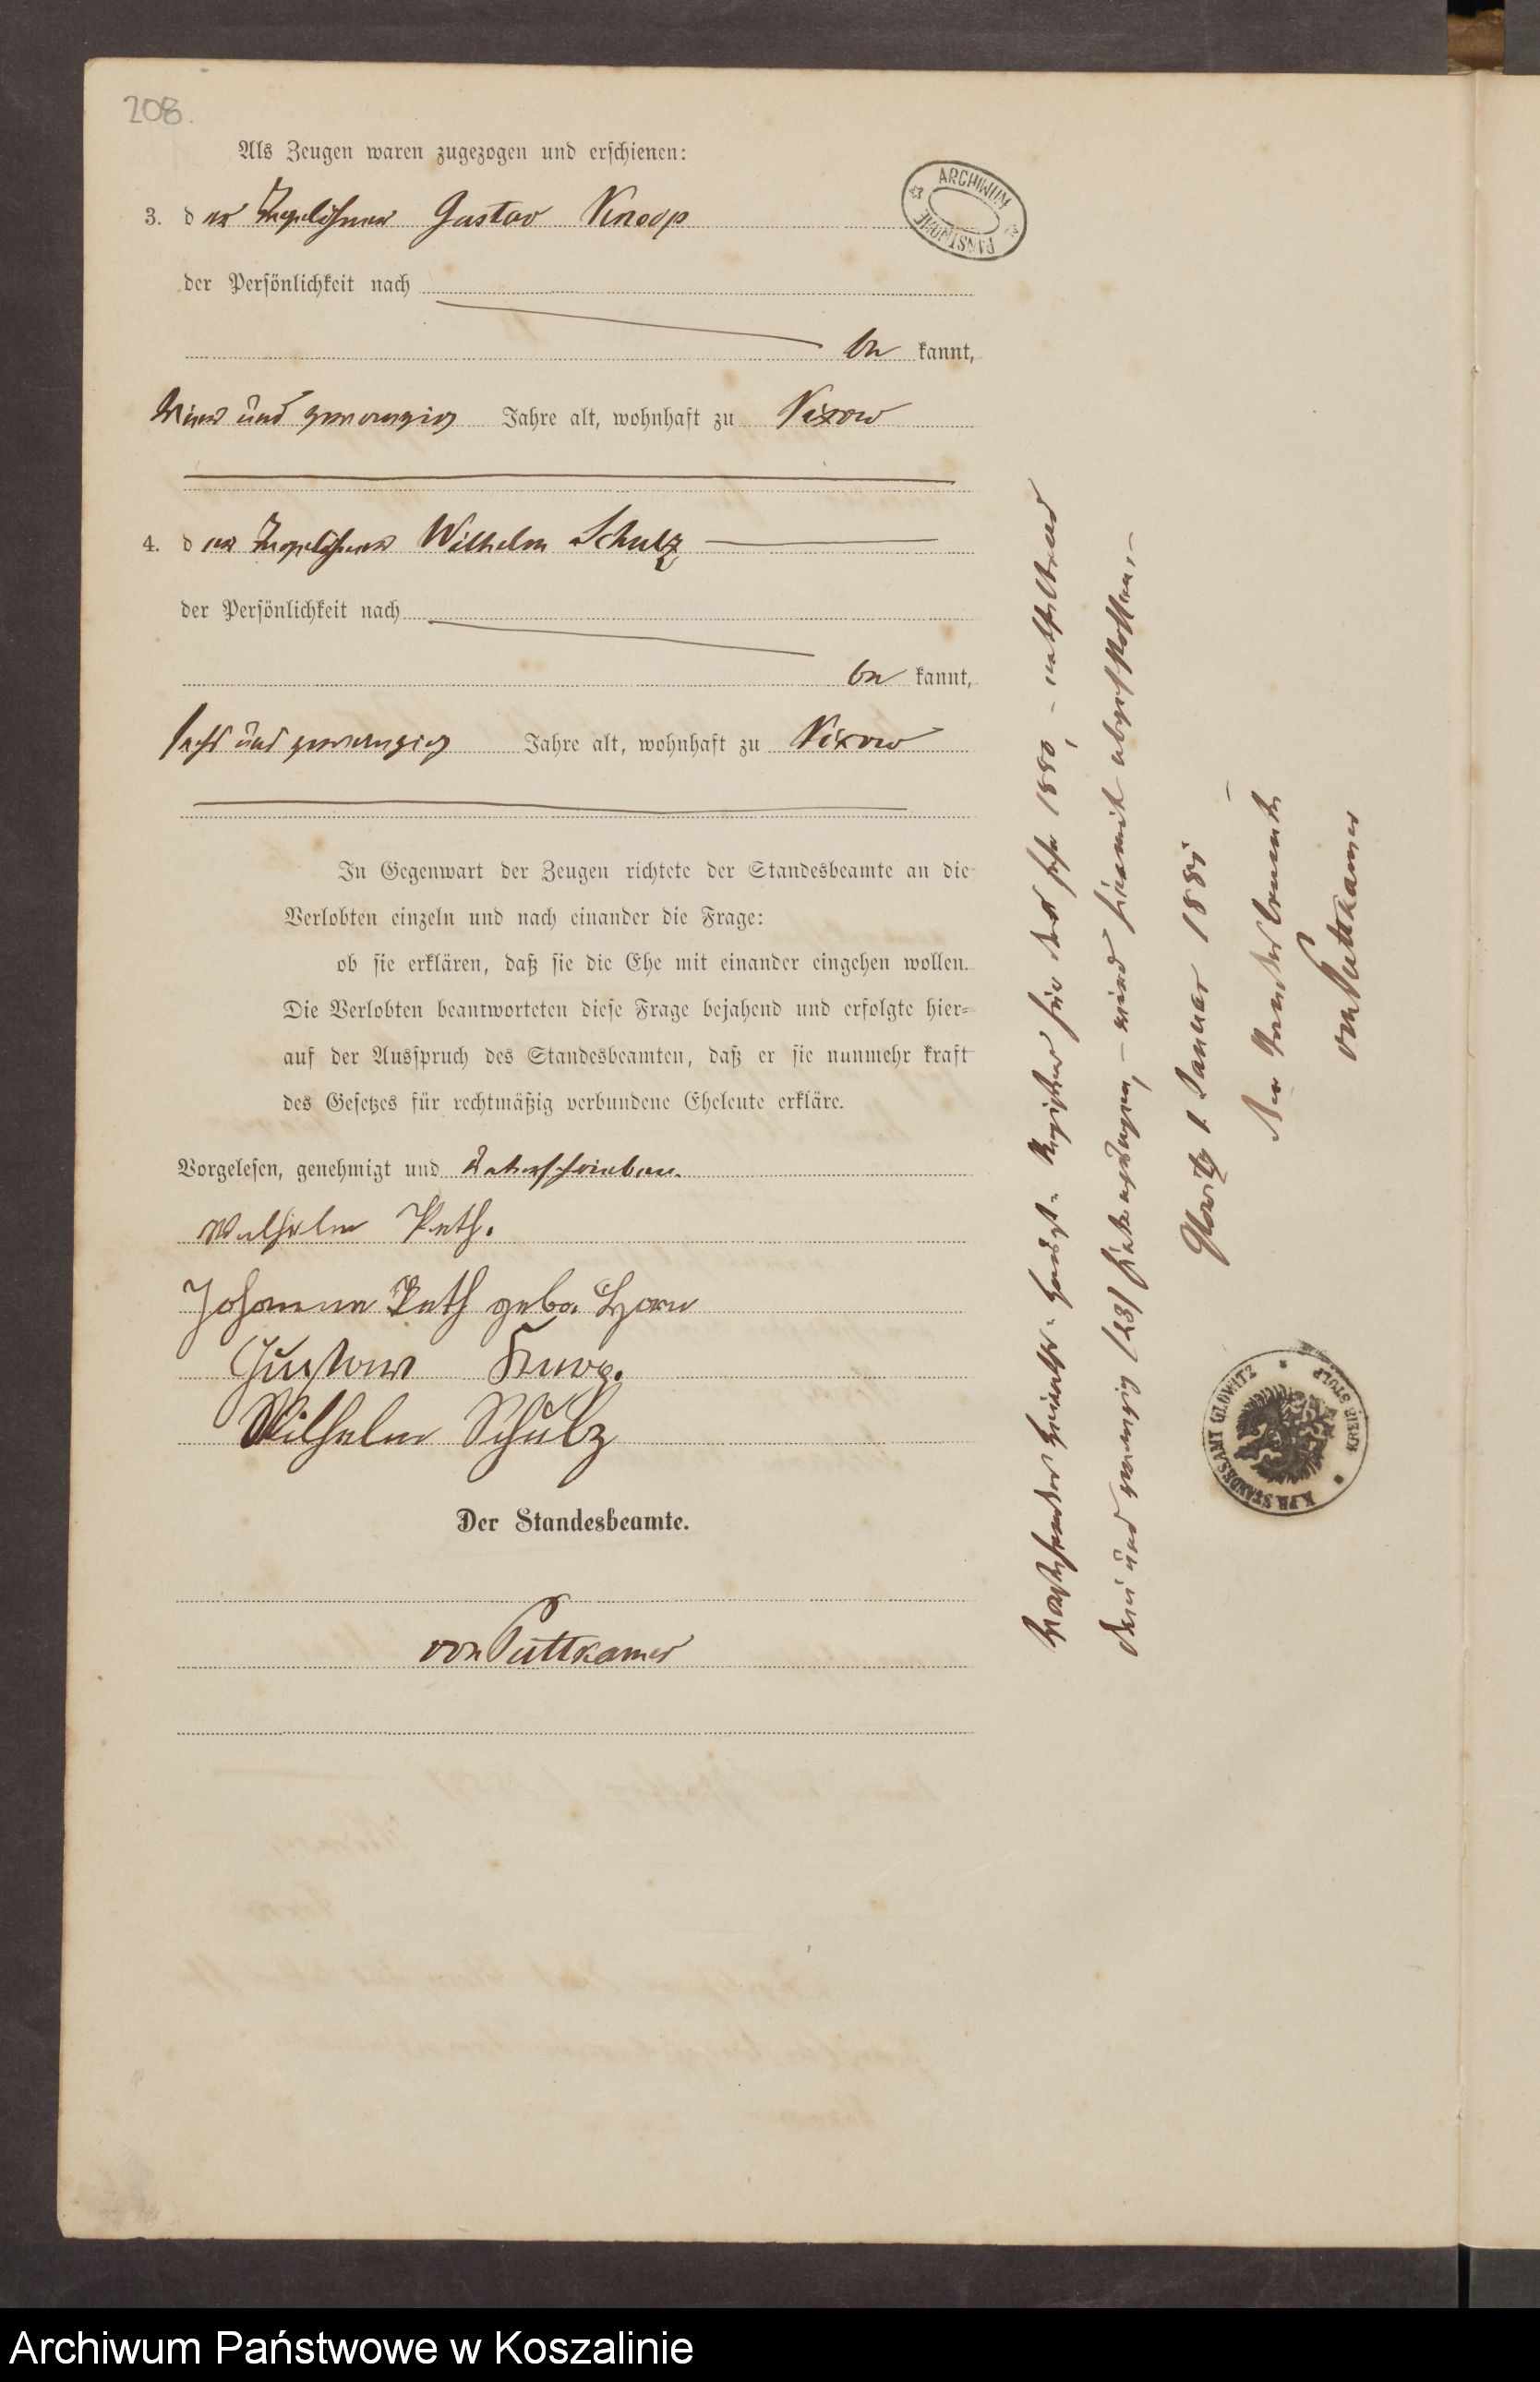 208.
Als Zeugen waren zugezogen und erschienen:
3. der Tagelöhner Gustav Knoop
der Persönlichkeit nach
be kannt,
und zwanzig Jahre alt, wohnhaft zu Vixow
4. der Tagelöhner Wilhelm Schulz
der Persönlichkeit nach
be kannt,
sechs und zwanzig Jahre alt, wohnhaft zu Vixow
In Gegenwart der Zeugen richtete der Standesbeamte an die
Verlobten einzeln und nach einander die Frage:
ob sie erklären, daß sie die Ehe mit einander eingehen wollen.
Die Verlobten beantworteten diese Frage bejahend und erfolgte hier=
auf der Ausspruch des Standesbeamten, daß er sie nunmehr kraft
des Gesetzes für rechtmäßig verbundene Eheleute erkläre.
Vorgelesen, genehmigt und unterschrieben.
Wilhelm
Johanna geb.
Gustav Knoop.
Wilhelm Schulz
Der Standesbeamte.
von Puttkamer
Vorstehendes Heiraths-Haupt-Register für das Jahr 1880, - enthaltend
drei und zwanzig (23) Eintragungen, - wird hiermit abgeschlossen. -
Glowitz 1. Januar 1881
Der Standesbeamte
von Puttkamer
K. PR. STANDESAMT GLOWITZ * KREIS STOLP *
ARCHIWUM PAŃSTWOWE
Archiwum Państwowe w Koszalinie